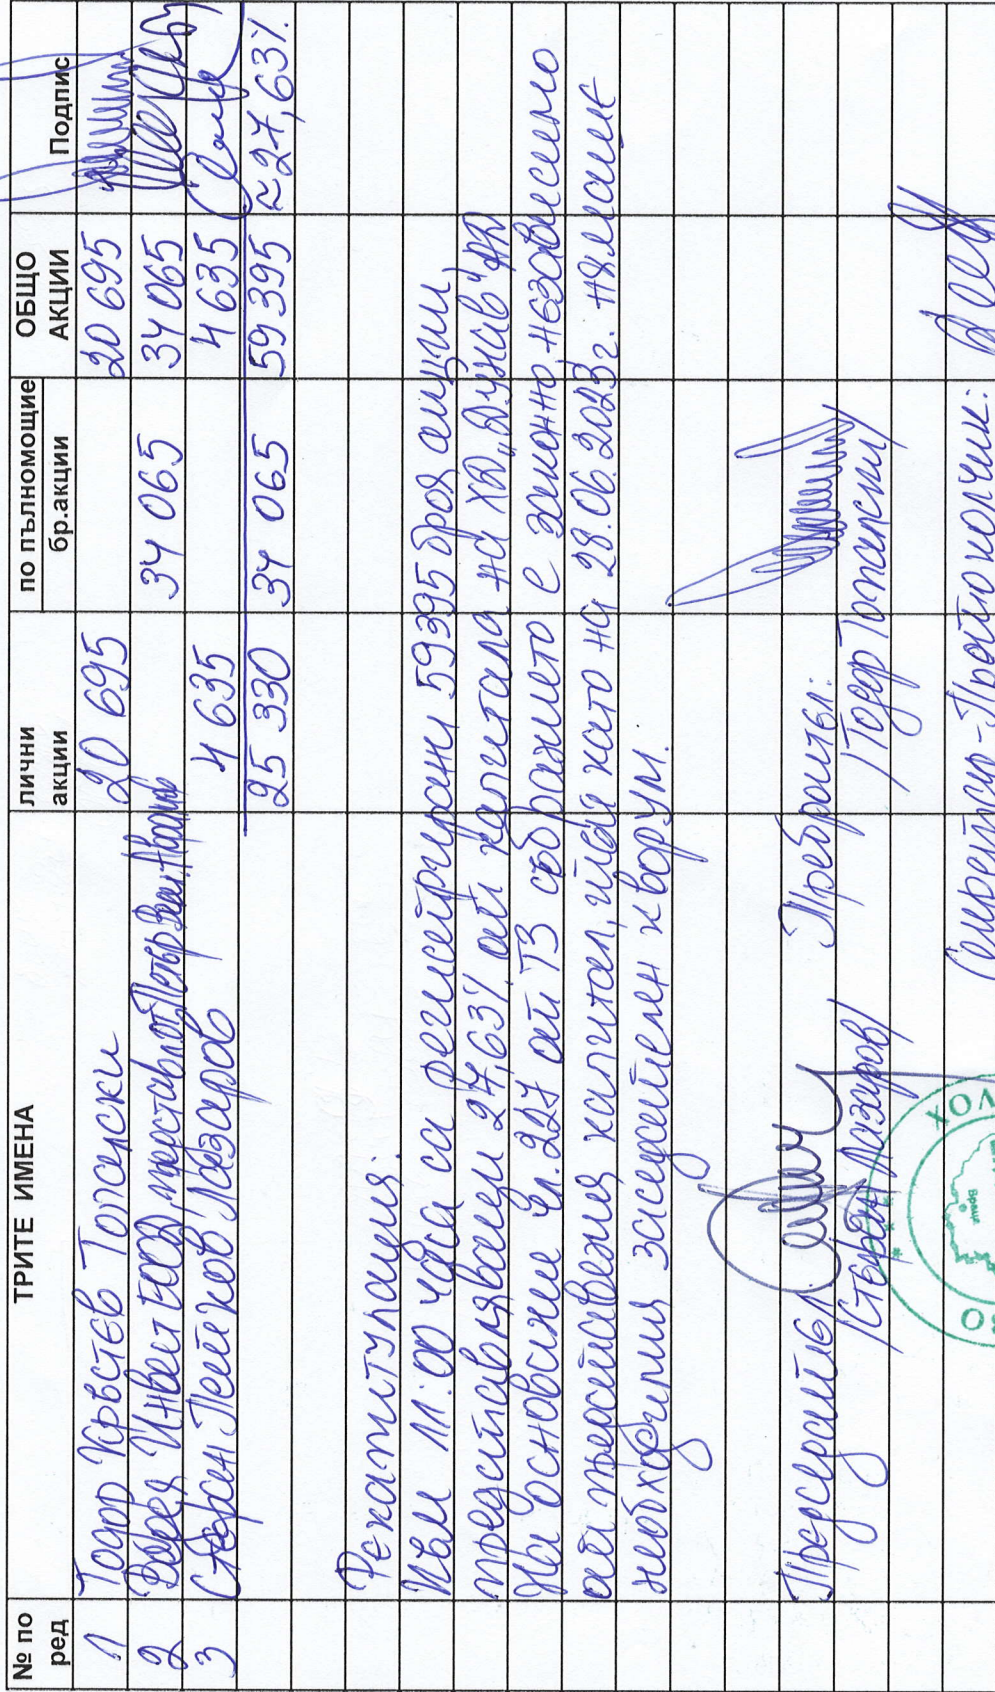 № по ред ТРИТЕ ИМЕНА лични акции по пълномощие бр.акции ОБЩО АКЦИИ Подпис
1 Тодор Кръстев Топчски 20 695 20 695
2 Инвест ЕООД, представл. от Петър 34 065 34 065
3 Стефан Петков Лазаров 4 635 4 635
25 330 34 065 59 395 ≈27,63%
Рекапитулация:
Към 11:00 часа са регистрирани 59395 броя акции,
представляващи 27,63% от капитала на ХД „Дунав" АД
На основание чл.227 от ТЗ събранието е законно независимо
от представения капитал, тъй като на 28.06.2023г. нямаше
необходимия заседателен кворум.
Председател: Преброител:
/Стефан Лазаров/ /Тодор
Секретар-Протоколчик:
Враца